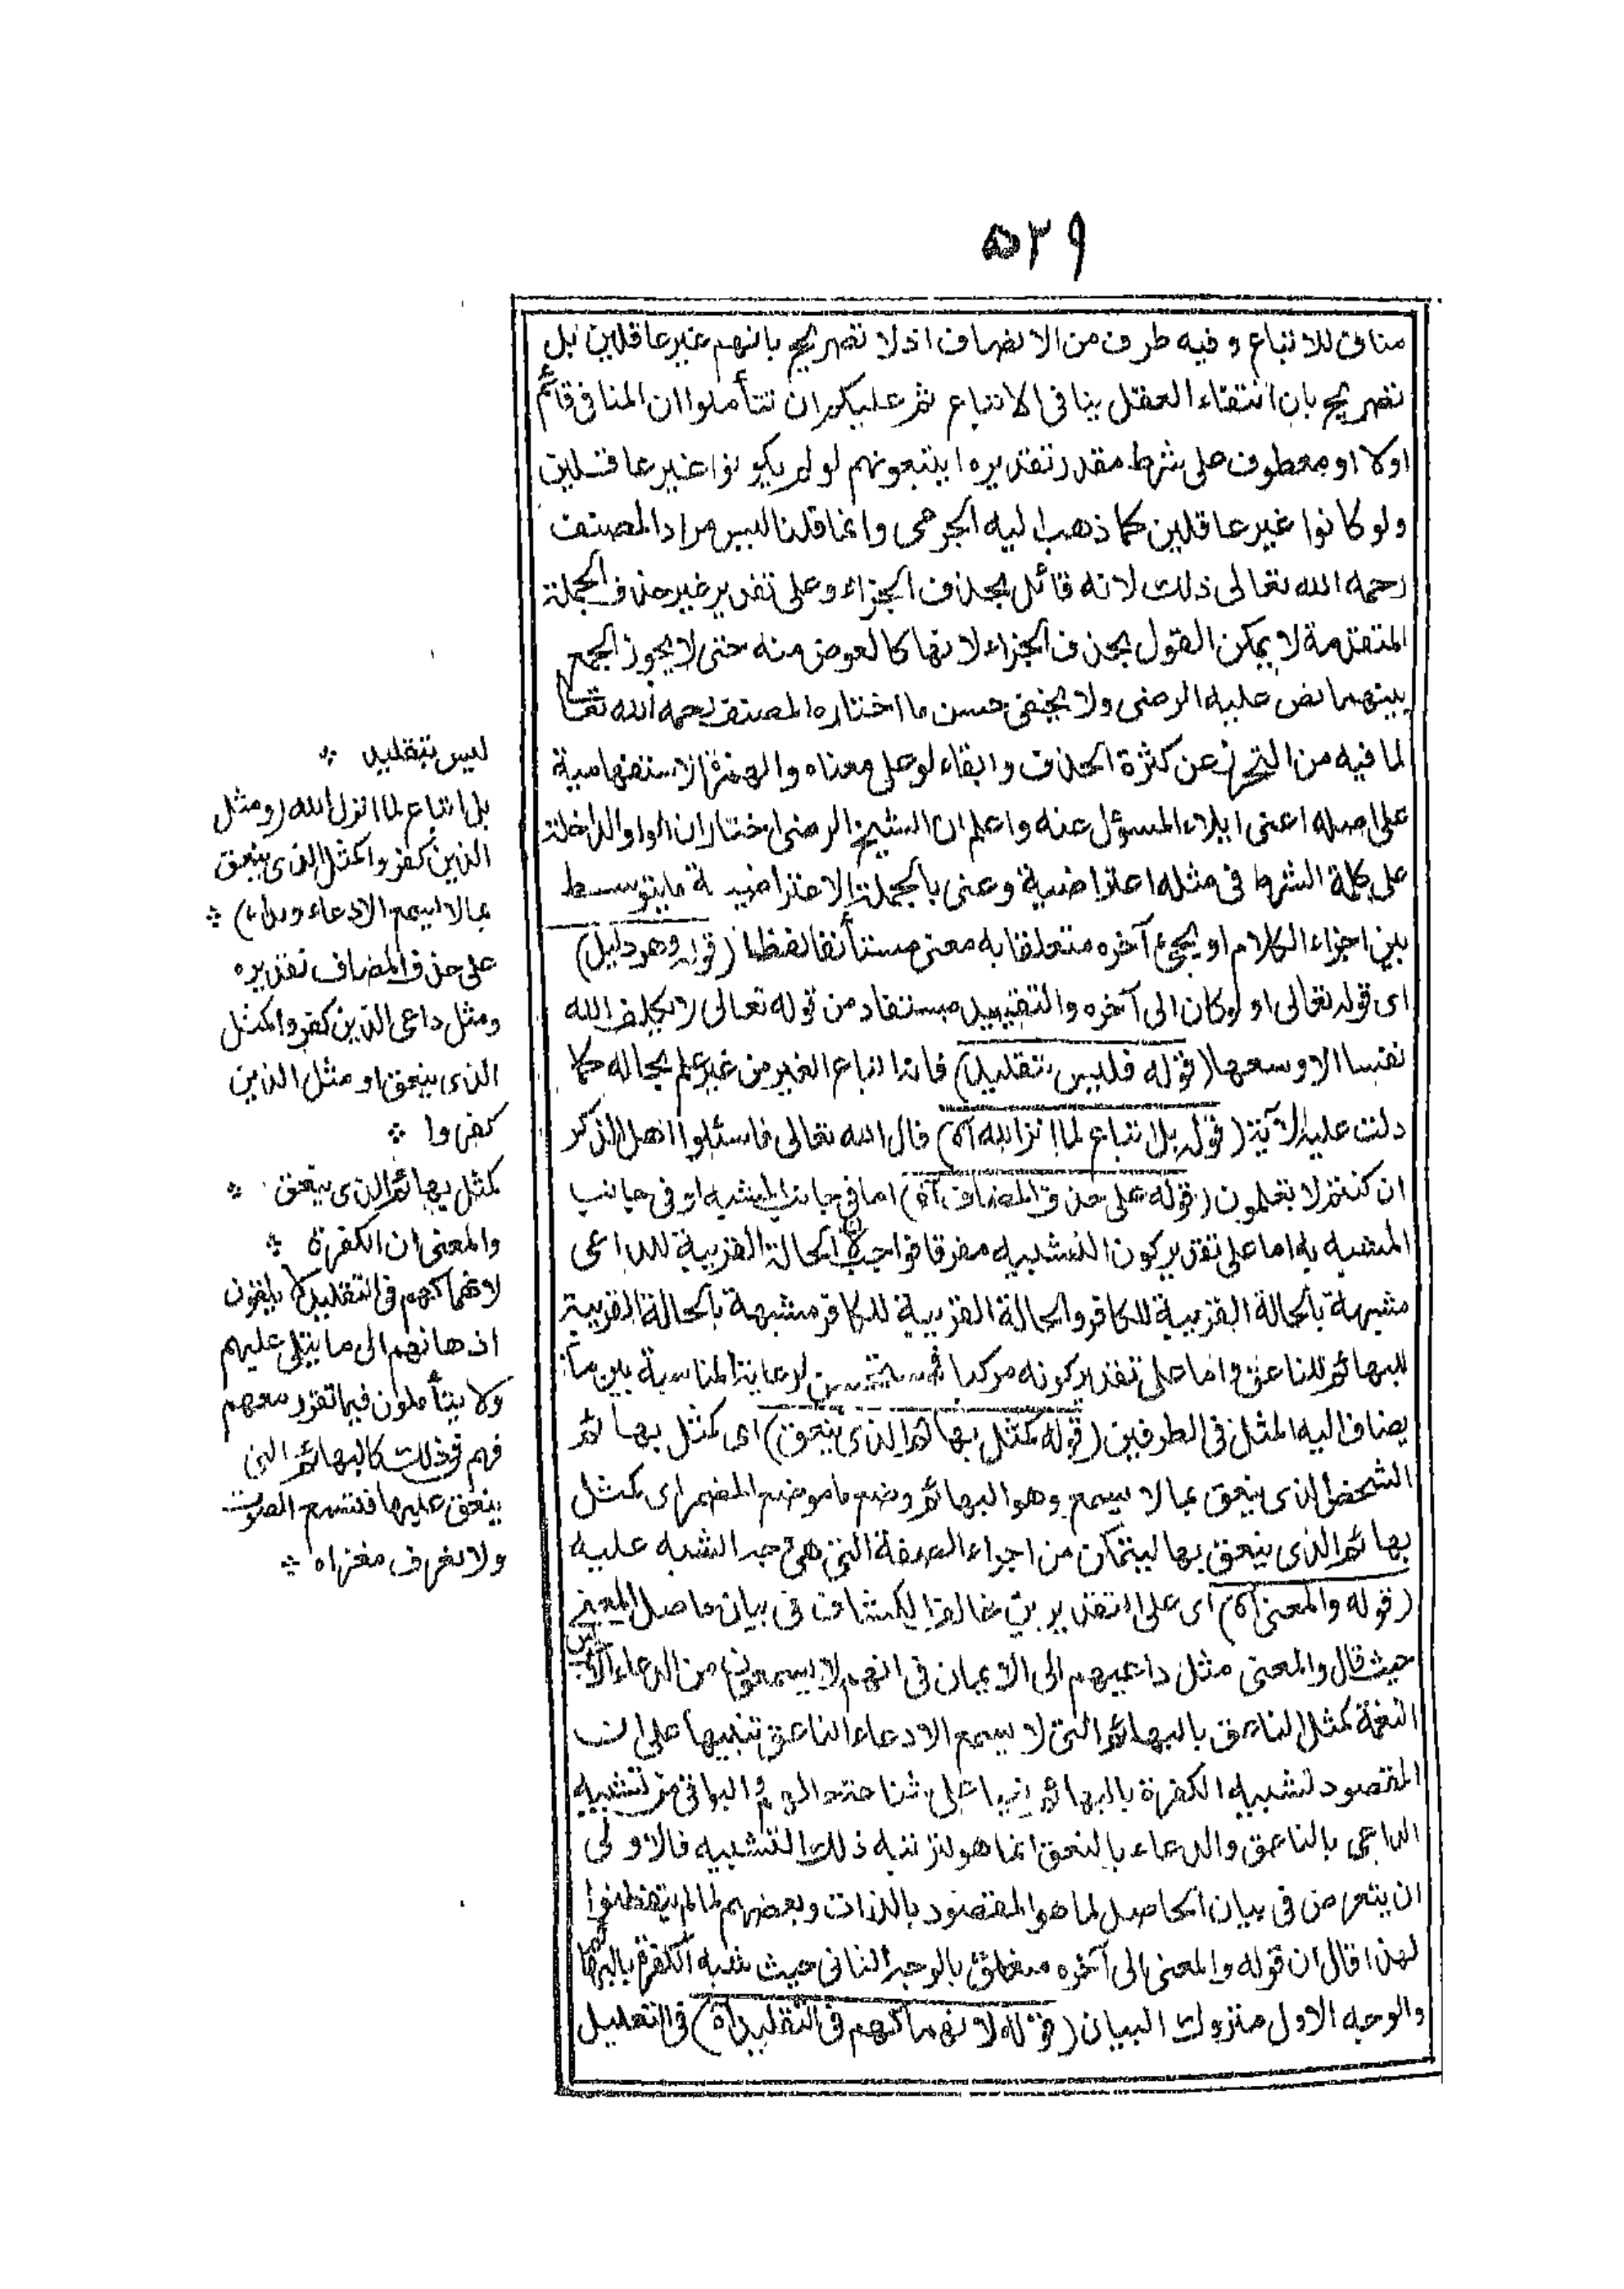 ٥٣٩
مناف للاتباع وفيه طرف من الانصاف اذ لا تصريح بانهم غير عاقلين بل
تصريح بان انتفاء العقل ينافى الاتباع ثم عليكم ان تتأملوا ان المنافى قائم
اولا او معطوف على شرط مقدر تقديره ايتبعونهم لو لم يكونوا غير عاقلين
ولو كانوا غير عاقلين كما ذهب اليه الجرمى وانما قلنا ليس مراد المصنف
رحمه الله تعالى ذلك لانه قائل بحذف الجزاء وعلى تقدير غير حذف الجملة
المتقدمة لا يمكن القول بحذف الجزاء لانها كالعوض منه حتى لا يجوز الجمع
بينهما نص عليه الرضى ولا يخفى حسن ما اختاره المصنف رحمه الله تعا
لما فيه من التحرز عن كثرة الحذف وابقاء لو على معناه والهمزة الاستفهامية
على اصله اعنى ايلاء المسؤل عنه واعلم ان الشيخ الرضى اختار ان الواو الداخلة
على كلمة الشرط فى مثله اعتراضية وعنى بالجملة الاعتراضية ما يتوسط
بين اجزاء الكلام او يجئ آخره متعلقا به معنى مستأنفا لفظا (قوله وهو دليل)
اى قوله تعالى او لو كان الى آخره والتقييد مستفاد من قوله تعالى لا يكلف الله
نفسا الا وسعها (قوله فليس بتقليد) فانه اتباع الغير من غير علم بحاله كما
دلت عليه الآية (قوله بل اتباع لما انزل الله آه) قال الله تعالى فاسئلوا اهل الذكر
ان كنتم لا تعلمون (قوله على حذف المضاف آه) اما فى جانب المشبه او فى جانب
المشبه به اما على تقدير كون التشبيه مفرقا فواجب لان الحالة القريبة للداعى
مشبهة بالحالة القريبة للكافر والحالة القريبة للكافر مشبهة بالحالة القريبة
للبهائم للناعق واما على تقدير كونه مركبا فمستحسن لرعاية المناسبة بين ما
يضاف اليه المثل فى الطرفين (قوله كمثل بهائم الذى ينعق) اى كمثل بهائم
الشخص الذى ينعق بما لا يسمع وهو البهائم وضع ما موضع المضمر اى كمثل
بهائم الذى ينعق بها ليتمكن من اجراء الصفة التى هى وجه الشبه عليه
(قوله والمعنى آه) اى على التقديرين مخالف الكشاف فى بيان حاصل المعنى
حيث قال والمعنى مثل داعيهم الى الايمان فى انهم لا يسمعون من الدعاء الاجرس
النغمة كمثل الناعق بالبهائم التى لا يسمع الا دعاء الناعق تنبيها على ان
المقصود تشبيه الكفرة بالبهائم على شناعة حالهم والبواقى من تشبيه
الداعى بالناعق والدعاء بالنعق انما هو لترتبه ذلك التشبيه فالاولى
ان يتعرض فى بيان الحاصل لما هو المقصود بالذات وبعضهم لما لم يتفطنوا
لهذا قال ان قوله والمعنى الى آخره متعلق بالوجه الثانى حيث شبه الكفرة بالبهائم
والوجه الاول متروك البيان (قوله لانهماكهم فى التقليد آه) فى التعليل
ليس بتقليد ⁂
بل اتباع لما انزل الله (ومثل
الذين كفروا كمثل الذى ينعق
بما لا يسمع الا دعاء ونداء) ⁂
على حذف المضاف تقديره
ومثل داعى الذين كفروا كمثل
الذى ينعق او مثل الذين
كفروا ⁂
كمثل بهائم الذى ينعق ⁂
والمعنى ان الكفرة ⁂
لانهماكهم فى التقليد لا يلقون
اذهانهم الى ما يتلى عليهم
ولا يتأملون فيما تقرر معهم
فهم فى ذلك كالبهائم التى
ينعق عليها فتسمع الصوت
ولا تعرف مغزاه ⁂